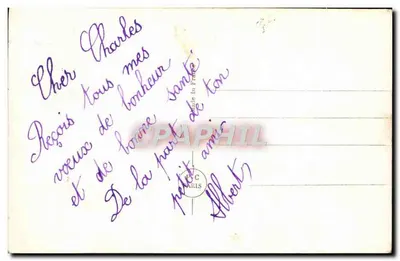 Cher Charles
Reçois tous mes
voeux de bonheur
et de bonne santé
De la part de ton
petit ami
Albert
CPAPHIL
C
PARIS